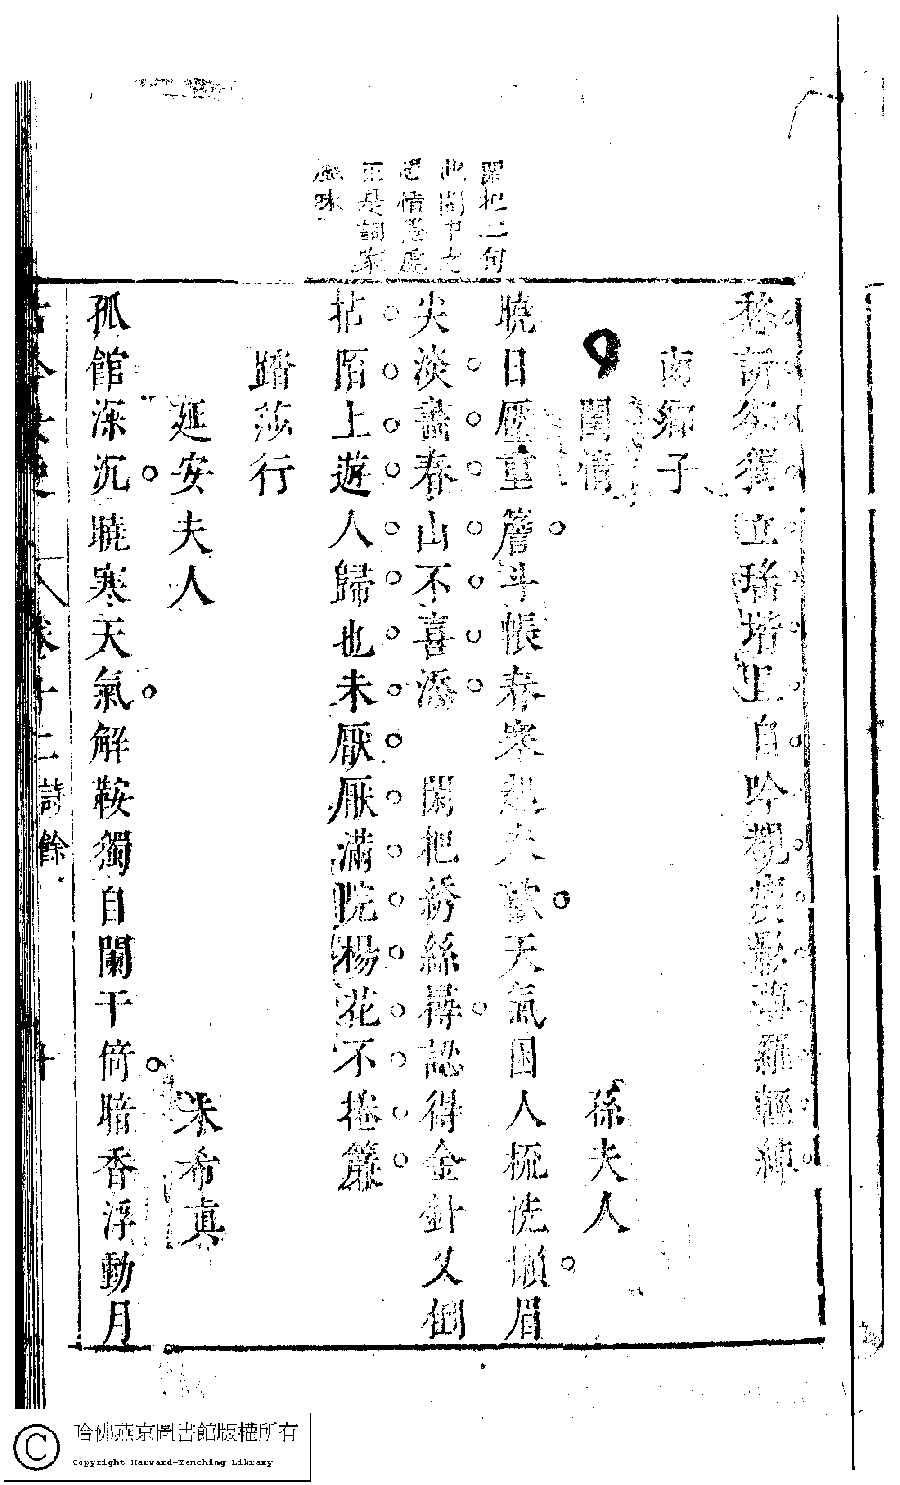 閑把二句
此閨中之
正是詞家
風味
愁訴衾獨立瑤堦上自吟覩瘦影薄羅輕綽
南鄉子
閨情 孫夫人
曉日壓重簷斗帳春寒起未忺天氣困人梳洗懶眉
尖淡畫春山不喜添 閑把綉絲撏認得金針又倒
拈陌上遊人歸也未厭厭滿院楊花不捲簾
踏莎行
延安夫人 朱希真
孤館深沉曉寒天氣解鞍獨自闌干倚暗香浮動月
卷十二 詩餘
哈佛燕京圖書館版權所有
Copyright Harvard-Yenching Library